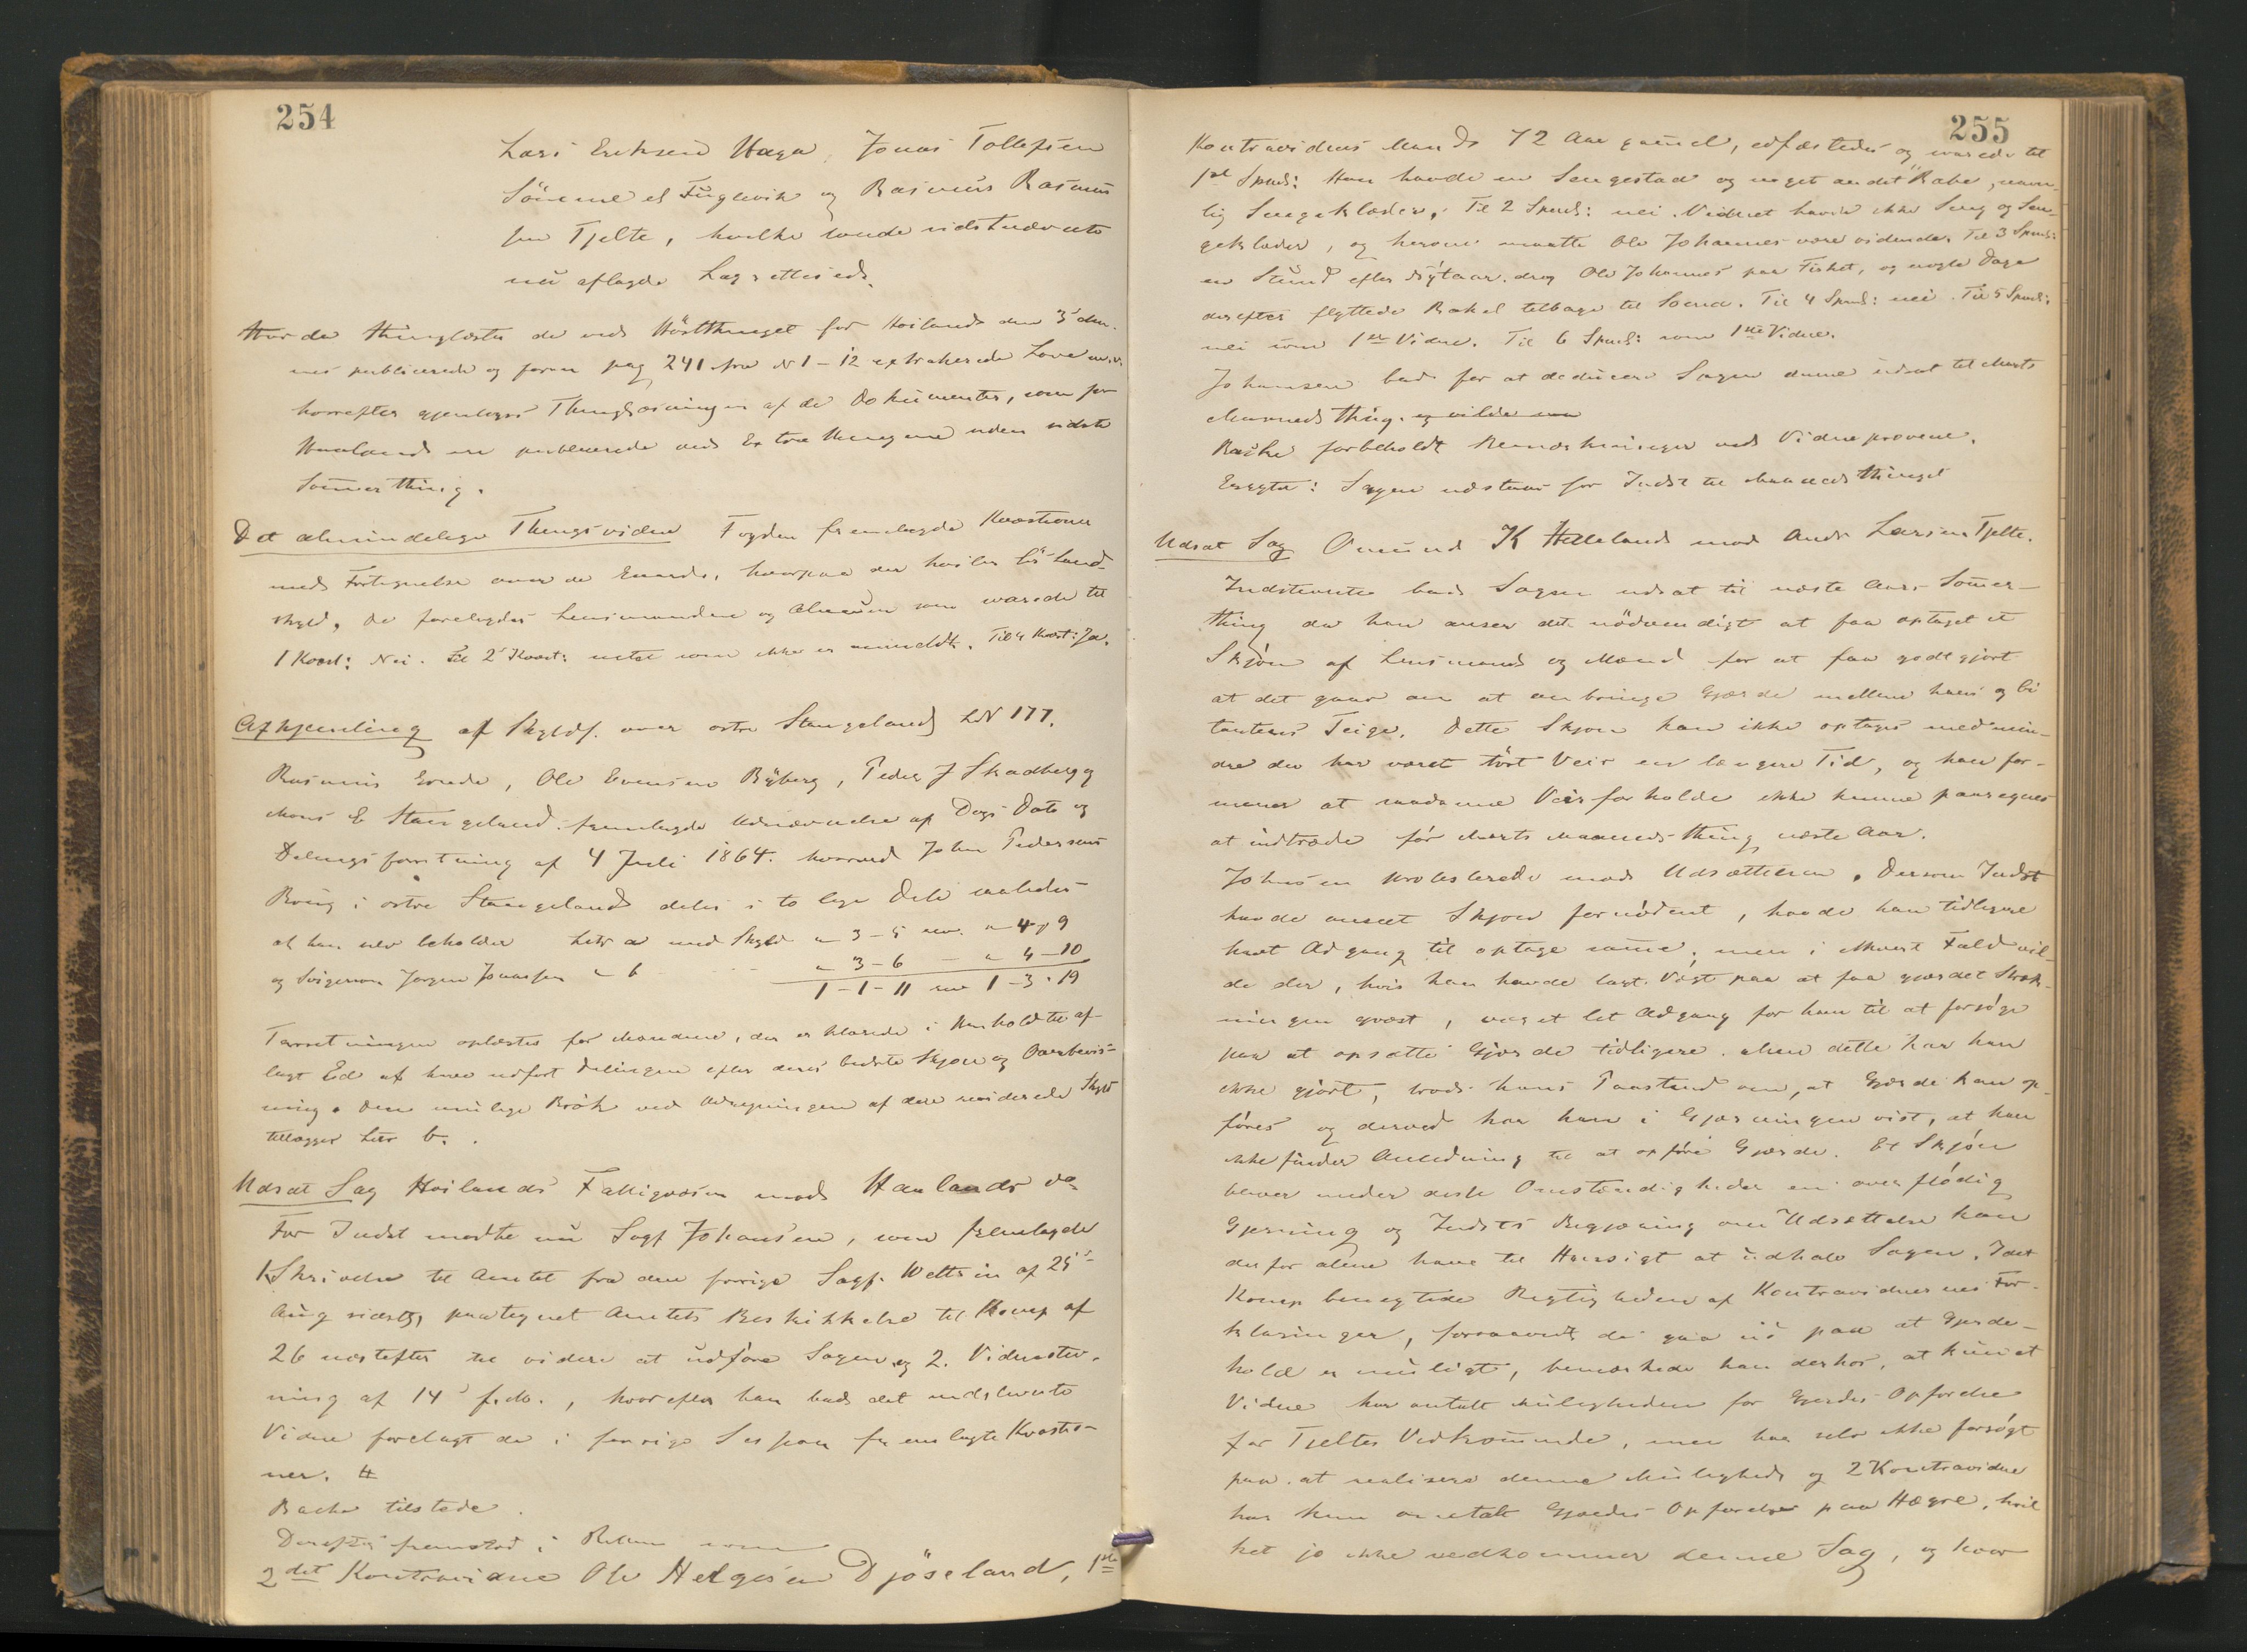 254
Lars Eriksen Haga, Jonas Tollefsen
Sömme el Fuglevik og Rasmus Rasmus
sen Tjelte, hvilke tvende sidstnævnte
nu aflagde Lagrettesed.
Hvor da thinglæstes de ved Höstthinget for Höiland den 3 den-
nes publicerede og foran pag 241 fra N 1 - 12 extraherede Love
hvorefter gjentoges Thinglæsningen af de Dokumenter, som for
Haaland ere publicerede ved Extrathingene siden sidste
Sommerthing.
Det almindelige Thingsvidne Fogden fremlagde Kvæstioner
med Fortegnelse over de Gaarde, hvorpaa der hviler lös Land-
skyld, de forelagdes Lensmanden og Almuen som svarede til
1 Kvæst: Nei. Til 2 Kvæst: intet som ikke er anmeldt. Til 4 Kvæst: Ja.
Afhjemling af Skyldf. over östre Stangeland LN 177.
Rasmus Grude, Ole Evensen Byberg, Peder J Skadberg og
Mons E Stangeland fremlagde Udnævnelse af Dags Dato og
Delingsforretning af 4 Juli 1864. hvorved John Pedersens
Brug i östre Stangeland deles i to lige Dele saaledes
at han selv beholder Litr a med Skyld " 3 - 5 rev. " 4 " 9
og Svigersøn Jørgen Jonassen " b " 3 - 6 - " 4 - 10
1 - 1 - 11 rev 1 - 3 - 19
Forretningen oplæstes for Mændene, der erklærede i Henhold til af-
lagt Ed at have udfört Delingen efter deres bedste Skjön og Overbevis-
ning. Den mulige Brök ved Udregningen af den reviderede Skyld
tillægges Litr b.
Udsat Sag Höilands Fattigvæsen mod Haalands do
For Indst mødte nu Sagf Johansen, som fremlagde
1. Skrivelse til Amtet fra den forrige Sagf. Weltzin af 25
Aug sidstl, paategnet Amtets Beskikkelse til Komp af
26 næstefter til videre at udföre Sagen og 2. Vidnestev-
ning af 14 f. M., hvorefter han bad det indstevnte
Vidne forelagt de i forrige Session fremlagte Kvæstio-
ner.
Bache tilstede.
Derefter fremstod i Retten som
2det Kontravidne Ole Helgesen Djöseland, 1ste
255
Kontravidnes Mand 72 Aar gammel, edfæstedes og svarede til
1ste Spms: Hun havde en Sengestad og noget andet Rabe, navn-
lig Sengeklæder. Til 2 Spms: nei. Vidnet havde ikke Seng og Sen-
geklæder, og herom maatte Ole Johannes være vidende. Til 3 Spms:
en Stund efter Nytaar drog Ole Johannes paa Fisket, og nogle Dage
derefter flyttede Rakel tilbage til Soma. Til 4 Spms: nei. Til 5 Spms:
nei som 1ste Vidne. Til 6 Spms: som 1ste Vidne.
Johansen bad for at deducere Sagen denne udsat til Marts
Maaneds thing. og vilde
Bache forbeholdt Bemærkninger ved Vidneprovene.
Eragtet: Sagen udstaar for Indst til Maanedsthinget
Udsat Sag Omund K Helleland mod Anders Larsen Tjelte.
Indstevnte bad Sagen udsat til næste Aars Sommer-
thing da han anser det nödvendigt at faa optaget et
Skjön af Lensmand og Mænd for at faa godtgjort
at det gaar an at anbringe Gjærde mellem hans og Ci
tantens Teige. Dette Skjön kan ikke optages med min-
dre der har været tört Veir en længere Tid, og han for-
mener at saadanne Veirforholde ikke kunne paaregnes
at indtræde för Marts Maaneds-thing næste Aar.
Johnsen protesterede mod Udsættelsen. Dersom Indst
havde anseet Skjön fornödent, havde han tidligere
havt Adgang til optage samme; men i ethvert Fald vil-
de der, hvis han havde lagt Vægt paa at faa gjærdet Stræk-
ningen prøvet, været let Adgang for ham til at forsöge
paa at opsætte Gjærde tidligere. Men dette har han
ikke gjort, trods hans Paastand om, at Gjærde kan op-
föres og derved har han i Gjerningen vist, at han
ikke finder Anledning til at opföre Gjærde. Et Skjön
bliver under disse Omstændigheder en overflödig
Gjerning og Indsts Begjæring om Udsættelse kan
derfor alene have til Hensigt at udhale Sagen. Idet
Komp benegtede Rigtigheden af Kontravidnernes For-
klaringer, forsaavidt de gaa ud paa at Gjerde-
hold er muligt, bemærkede han derhos, at kun et
Vidne har antalt Muligheden for Gjerdes Opförelse
for Tjeltes Vedkommende, men har selv ikke forsögt
paa at realisere denne Mulighed og 2 Kontravidne
har kun omtalt Gjærdes Opförelse paa Hægre, hvil
ket jo ikke vedkommer denne Sag, og hvor